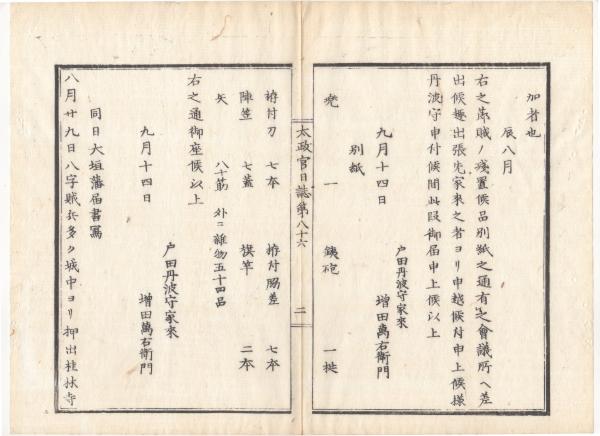 加者也
辰八月
右之賊ノ殘置候品別紙之通有之會議所ヘ差
出候趣出張先家来之者ヨリ申越候付申上候様
丹波守申付候間此段御届申上候以上
九月十四日
戸田丹波守家来
増田萬右衛門
別紙
兜 一 銕砲 一挺
太政官日誌第八十六
二
拵付刀 七本 拵付脇差 七本
陣笠 七蓋 旗竿 二本
矢 八十筋 外ニ雑物五十四品
右之通御座候以上
九月十四日
戸田丹波守家来
増田萬右衛門
同日大垣藩届書寫
八月廿九日八字賊兵多ク城中ヨリ押出桂林寺